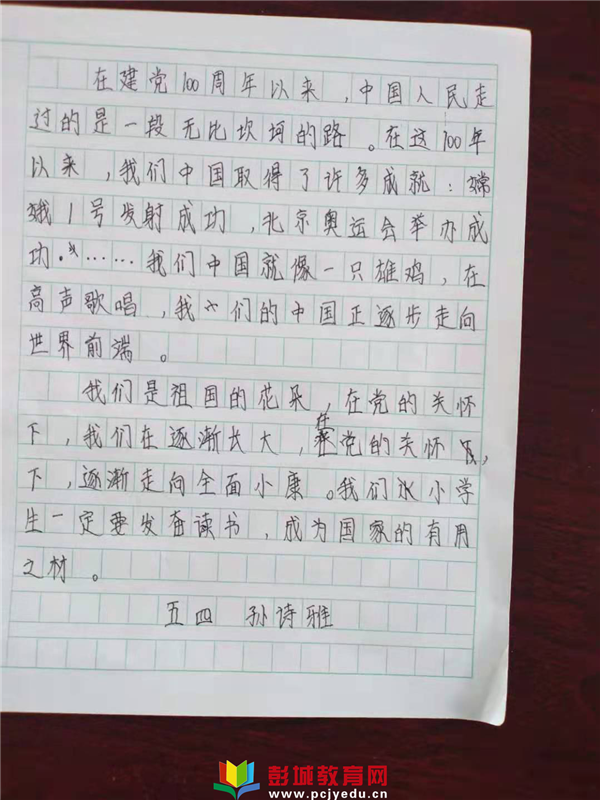 在建党100周年以来，中国人民走
过的是一段无比坎坷的路。在这100年
以来，我们中国取得了许多成就：嫦
娥1号发射成功，北京奥运会举办成
功……我们中国就像一只雄鸡，在
高声歌唱，我们的中国正逐步走向
世界前端。
我们是祖国的花朵，在党的关怀
下，我们在逐渐长大，在党的关怀
下，逐渐走向全面小康。我们小学
生一定要发奋读书，成为国家的有用
之材。
五四 孙诗雅
彭城教育网
www.pcjyedu.cn